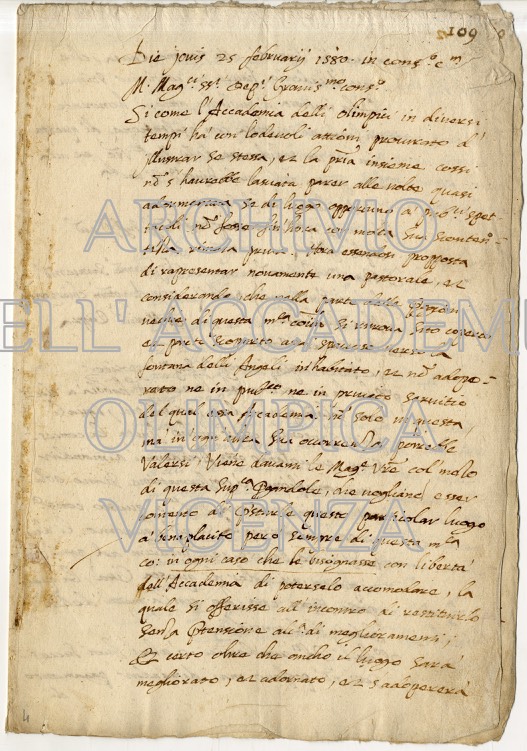 109
Die jovis 25 februarij 1580. in cons.o c.m
M. Mag.ci ss.ri Dep.ti Gravis.mo cons.o
Si come l'Accademia delli olimpici in diversi
tempi ha con lodevoli attioni procurato d'
illustrar se stessa, et la p'ria insieme cossi
nō s'haurebbe lasciata parer alle volte quasi
adormentata se di luogo opportuno a' pub.ci spet-
tacoli nō fosse fin'hora con molta sua sconten-
tezza, priva. Hora essendosi proposta
di rapresentar novamente una pastorale, et
considerando, che nella parte delle preggion
vecchie di questa m.ca coīta si ritrova sito coperto
et parte scoperto assai spacioso verso la
fontana delli Angeli inhabitato, et nō adope-
rato ne in pub.co ne in privato servitio
del qual essa Accademia nō solo in questa
mà in ogn'altra sua occorrenza, potrebbe
Valersi, Viene davanti le Mag.e Vre col mezo
di questa sup.ca Pgandole, che vogliano esser
contente di Pstarle questo particolar luogo
a' beneplacito però sempre di questa m.ca
co: in ogni caso che le bisognasse con libertà
dell'Accademia di poterselo accomodare, la
quale si offerisse all'incontro di restituirlo
senza Ptensione alc.a di meglioramenti;
Et certo oltre che ancho il luogo sarà
megliorato, et adornato, et s'adopererà
ARCHIVIO
DELL'ACCADEMIA
OLIMPICA
VICENZA